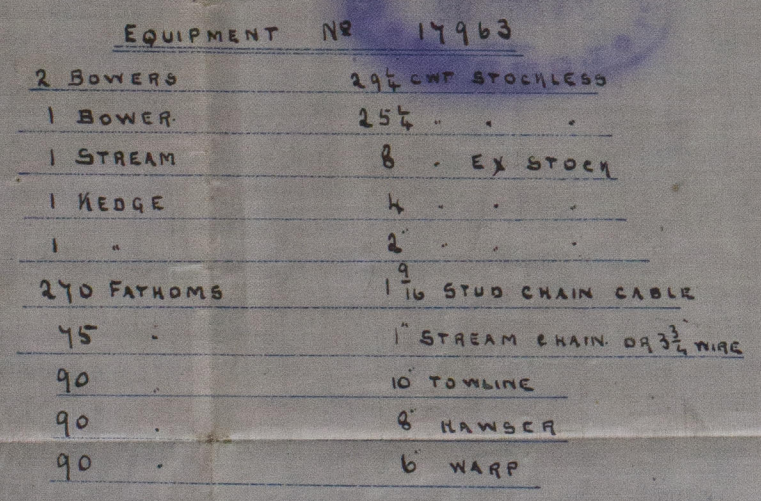 EQUIPMENT Nº 17963
2 BOWERS 29¼ CWT STOCKLESS
1 BOWER. 25¼ " " "
1 STREAM 8 " EX STOCK
1 KEDGE 4 " " "
1 " 2 " " "
270 FATHOMS 1 9/16 STUD CHAIN CABLE
75 " 1" STREAM CHAIN. OR 3¾ WIRE
90 " 10" TOWLINE
90 " 8" HAWSER
90 " 6" WARP